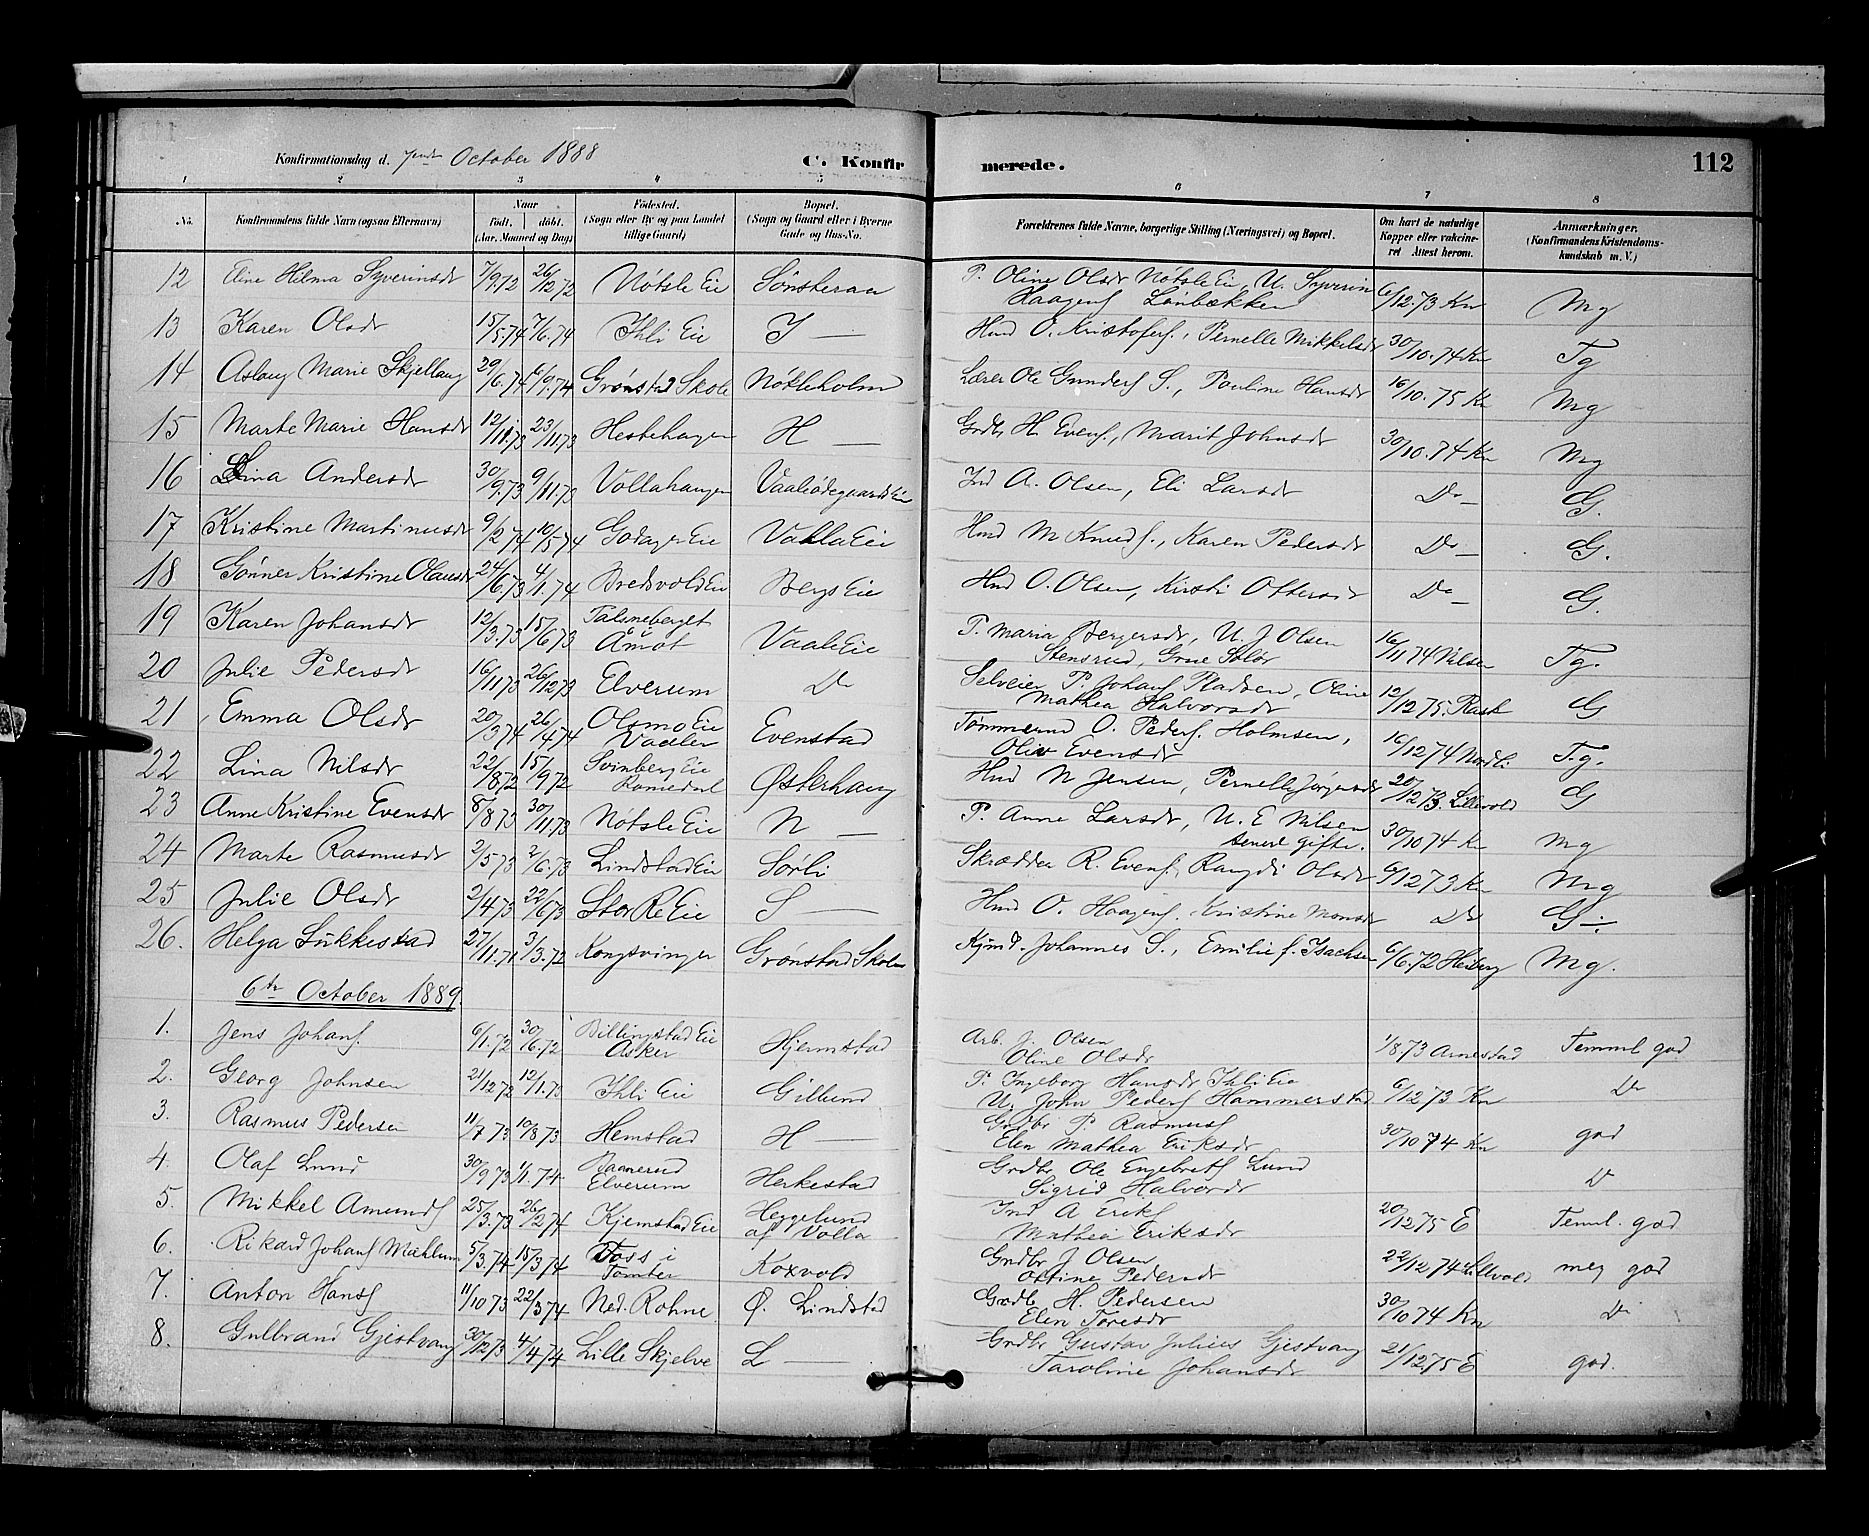 Konfirmationsdag d. 7nde October 1888 C. Konfirmerede. 112
1 2 3 4 5 6 7 8
No. Konfirmandens fulde Navn (ogsaa Efternavn) Naar født, døbt. (Aar, Maaned og Dag) Fødested. (Sogn eller By og paa Landet tillige Gaard) Bopæl. (Sogn og Gaard eller i Byerne Gade og Hus-No. Forældrenes fulde Navne, borgerlige Stilling (Næringsvei) og Bopæl. Om havt de naturlige Kopper eller vakcineret Attest herom. Anmærkninger. (Konfirmandens Kristendomskundskab m. V.)
12 Eline Helma Syverinsdr 7/9.72 26/12 72 Nøtsle Eie Sønsteraa P. Oline Olsdr Nøtsle Eie, U. Syverin
Haagens Lønbækken 6/12.73 Kn Mg
13 Karen Olsdr 15/5.74 7/6.74 Ihli Eie I — Hmd O. Kristofers., Pernelle Mikkelsdr 30/10.74 Kn Tg
14 Aslaug Marie Skjellaug 29/6.74 6/9.74 Grønstad Skole Nøkleholm Lærer Ole Gunders S., Pauline Hansdr 16/10.75 Kn Mg
15 Marte Marie Hansdr 12/11.73 23/11.73 Hestehagen H — Grdbr H. Evens., Marit Johnsdr 30/10.74 Kn Mg
16 Lina Andersdr 30/9.73 9/11.73 Vollahaugen Vaaleødegaards Eie Ind A. Olsen, Eli Larsdr Do — G.
17 Kristine Martinusdr 9/2 74 10/5 74 Godager Eie Valla Eie Hmd M Knuds., Karen Pedersdr Do — G.
18 Gønner Kristine Olausdr 24/6.73 4/1.74 Bredsvold Eie Bergs Eie Hmd O. Olsen, Kirsti Ottersdr Do — G.
19 Karen Johansdr 12/3.73 15/6 73 Talsneberget
Åmot Vaale Eie P. Maria Bergersdr, U. J Olsen
Stensrud, Grue Solør 16/11 74 Nilsen Tg.
20 Julie Pedersdr 16/11.73 26/12 73 Elverum Do Selveier P. Johans Pladsen, Oline
Mathea Halvorsdr 12/12 75. Rask G
21 Emma Olsdr 20/3 74 26/4 74 Olsmo Eie
Vaaler Evenstad Tømmermd O. Peders. Holmsen,
Oliv Evensdr 16/12 74 Nordli T.g.
22 Lina Nilsdr 22/8 72 15/9 72 Svinberg Eie
Romedal Østerhaug Hmd N Jensen, Pernelle Jørgensdr 20/12 73. Lillevold G
23 Anne Kristine Evensdr 8/8 73 30/11.73 Nøtsle Eie N — P. Anne Larsdr, U. E Nilsen
senere gifte. 30/10 74 Kn Mg
24 Marte Rasmusdr 2/5 73 2/6.73 Lindstad Eie Sørli Skrædder R. Evens. Rangdi Olsdr 6/12 73 Kn Mg
25 Julie Olsdr 2/4 73 22/6/73 Stor Re Eie S — Hmd O. Haagens. Kristine Monsdr Do G ÷
26. Helga Lükkestad 27/11.71 3/3.72 Kongsvinger Grønstad Skole Johannes S., Emilie f. Isachsen 6/6.72 Heiberg Mg.
6te October 1889.
1. Jens Johans. 6/1.72 30/6.72 Billingstad Eie
Asker Hjermstad Arb. J. Olsen
Oline Olsdr 1/8.73 Arnestad Temml. god
2. Georg Johnsen 21/12 72 12/1.73 Ihli Eie Gillund P. Ingeborg Hansdr Ihli Eie
U. John Peders Hammerstad 6/12 73 Kn Do
3. Rasmus Pedersen 11/7 73 10/8.73 Hemstad H — Grdbr P. Rasmuss
Elen Mathea Eriksdr 30/10 74 Kn god
4. Olaf Lund 30/9 73 1/1.74 Baanerud
Elverum Herkestad Grdbr Ole Engebrets Lund
Sigrid Halvordr D
5. Mikkel Amunds 25/3.73 26/2 74 Kjemstad Eie Heggelund
af Volla Ind A Eriks
Mathea Eriksdr 20/12 75 E Teml. god
6. Rikard Johans Mæhlum 5/3.74 15/3 74 Foss i
Tomter Koxvold Grdbr J. Olsen
Ottine Pedersdr 22/12 74 Lillevold meg god
7. Anton Hans 11/10 73 22/3 74 Ned. Rohne Ø. Lindstad Grdb. H. Pedersen
Elen Toresdr 30/10 74 Kn D
8. Gulbrand Gjestvang 30/12 73 4/4 74 Lille Skjelve L — Grdbr Gustav Julius Gjestvang
Taroline Johansdr 21/12.75 E god.